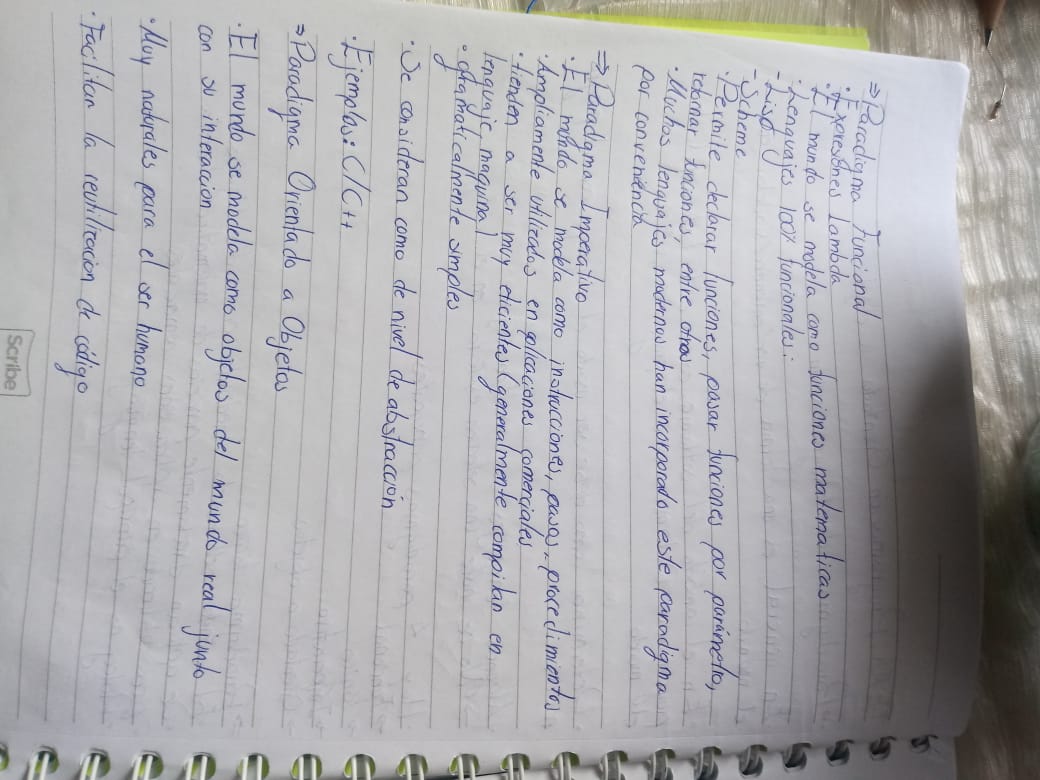 ⇒ Paradigma Funcional
· Expresiones lambda
· El mundo se modela como funciones matematicas
· Lenguajes 100% funcionales:
- Lisp
- Scheme
· Permite declarar funciones, pasar funciones por parámetro,
retornar funciones, entre otros
· Muchos lenguajes modernos han incorporado este paradigma
por conveniencia
⇒ Paradigma Imperativo
· El mundo se modela como instrucciones, pasos, procedimientos
· Ampliamente utilizados en aplicaciones comerciales
· Tienden a ser muy eficientes (generalmente compilan en
lenguaje maquina)
· gramaticalmente simples
· Se consideran como de nivel de abstracción
· Ejemplos: C/C++
⇒ Paradigma Orientado a Objetos
· El mundo se modela como objetos del mundo real junto
con su interacion
· Muy naturales para el ser humano
· Facilitan la reutilizacion de código
Scribe